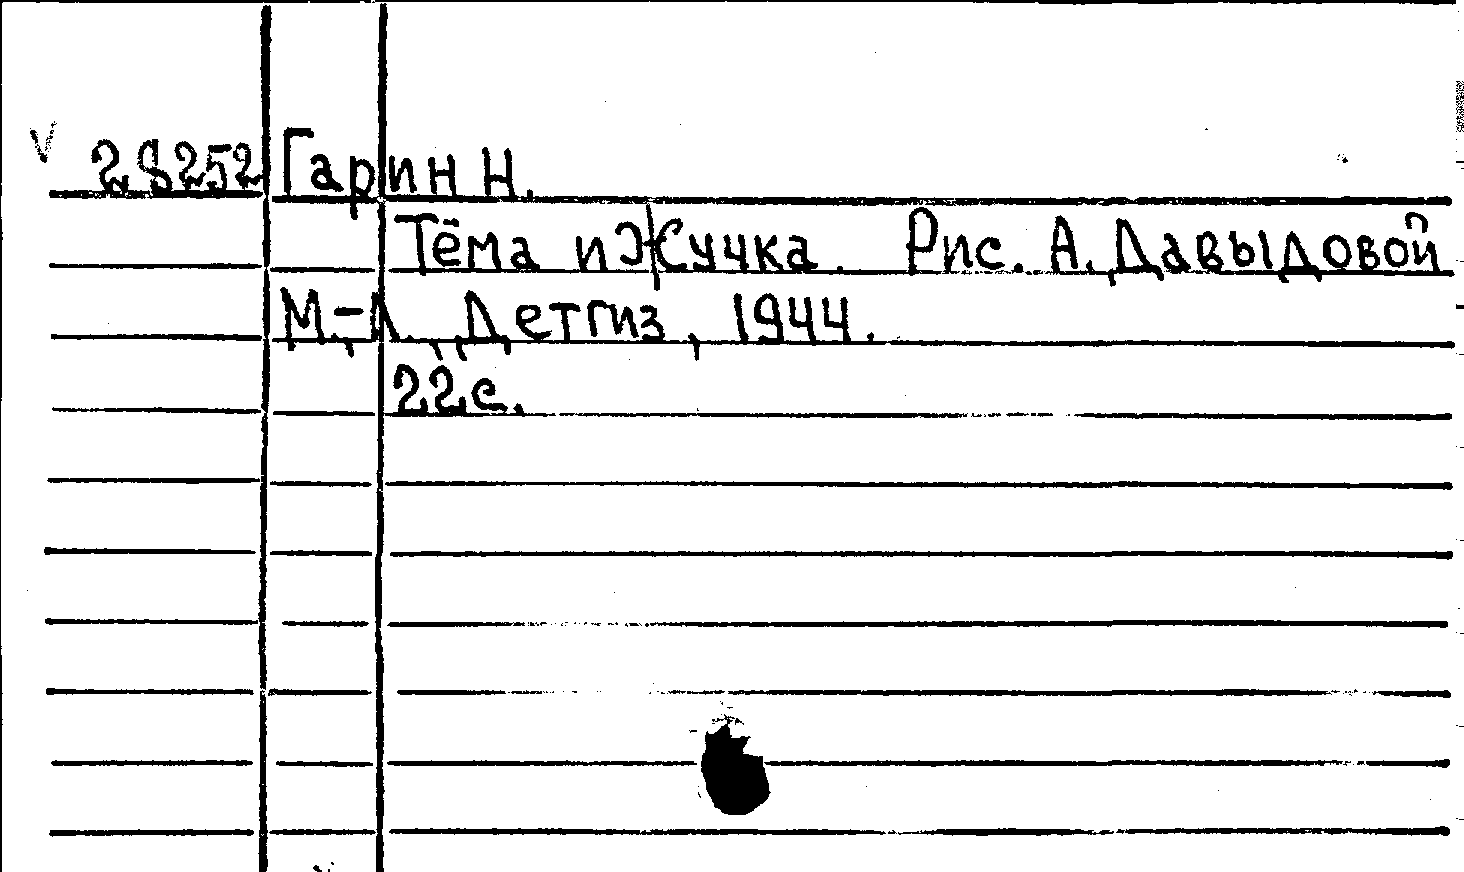 V 28252 Гарин Н.
Тёма и Жучка. Рис. А. Давыдовой
М.-Л., Детгиз, 1944.
22с.